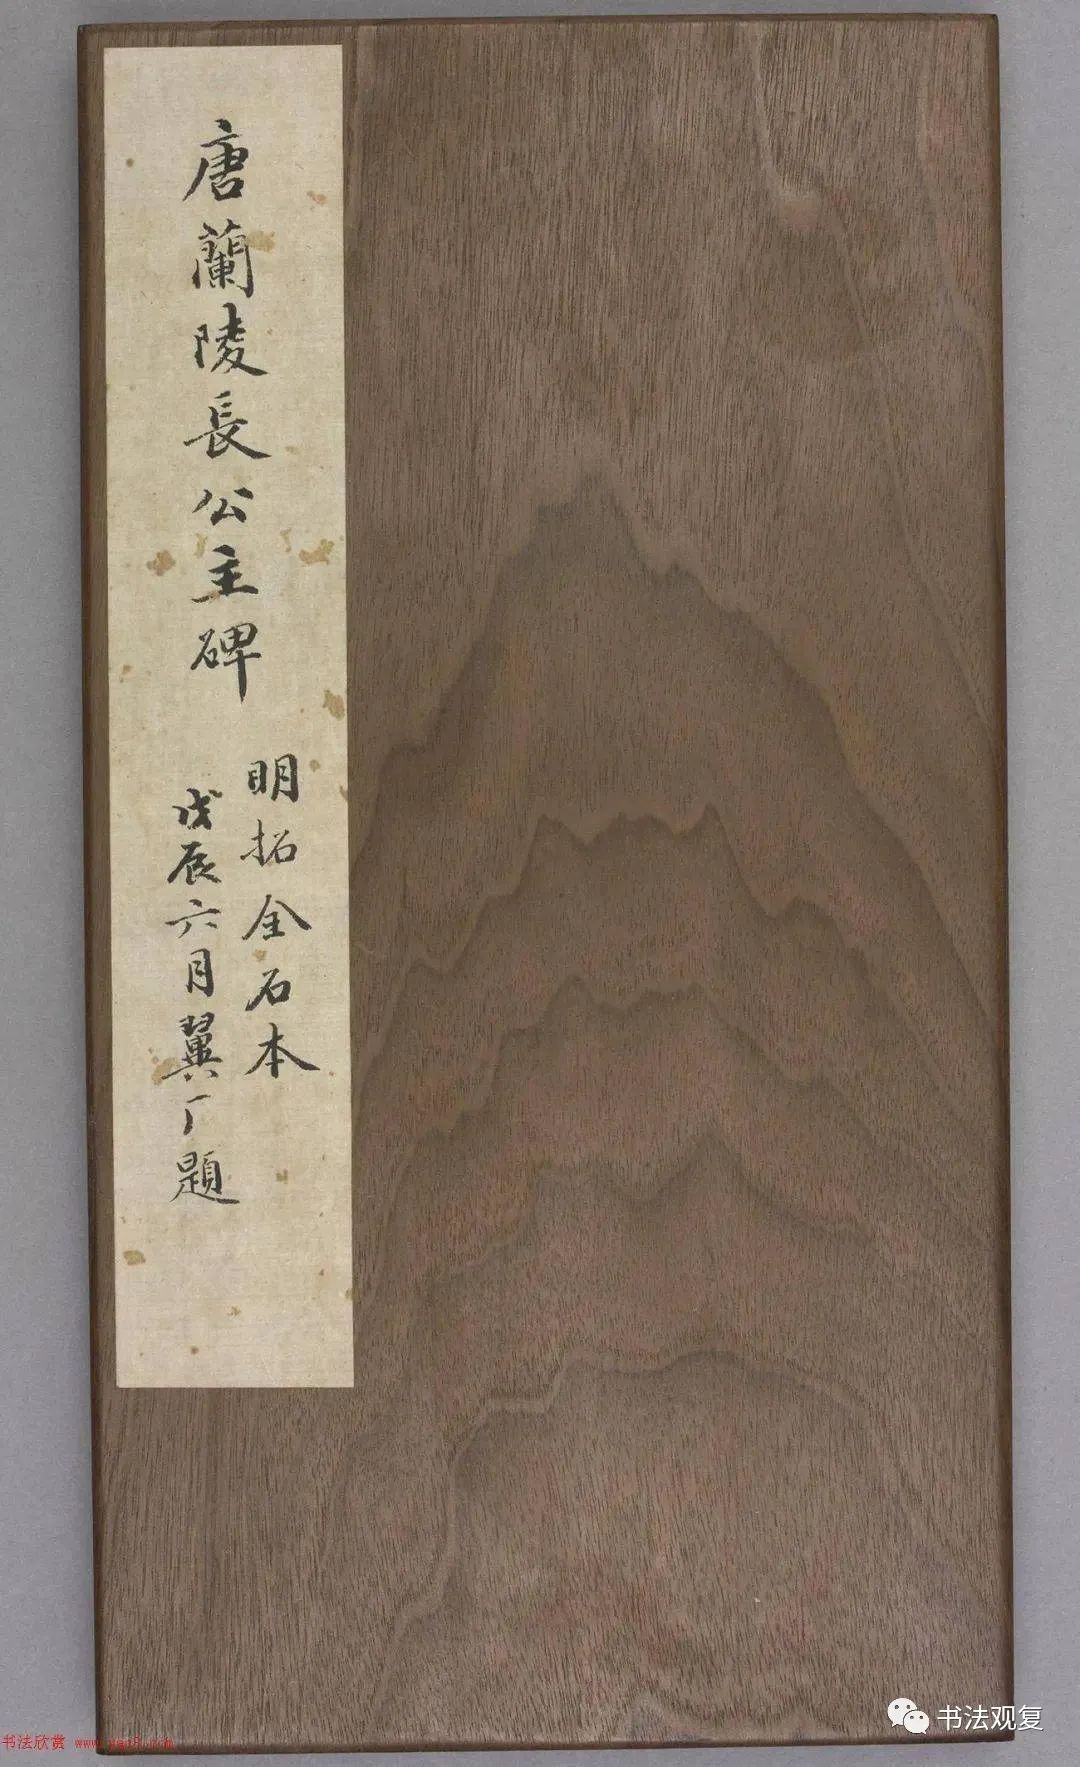 唐蘭陵長公主碑
明拓全石本
戊辰六月翼厂題
书法观复
书法欣赏